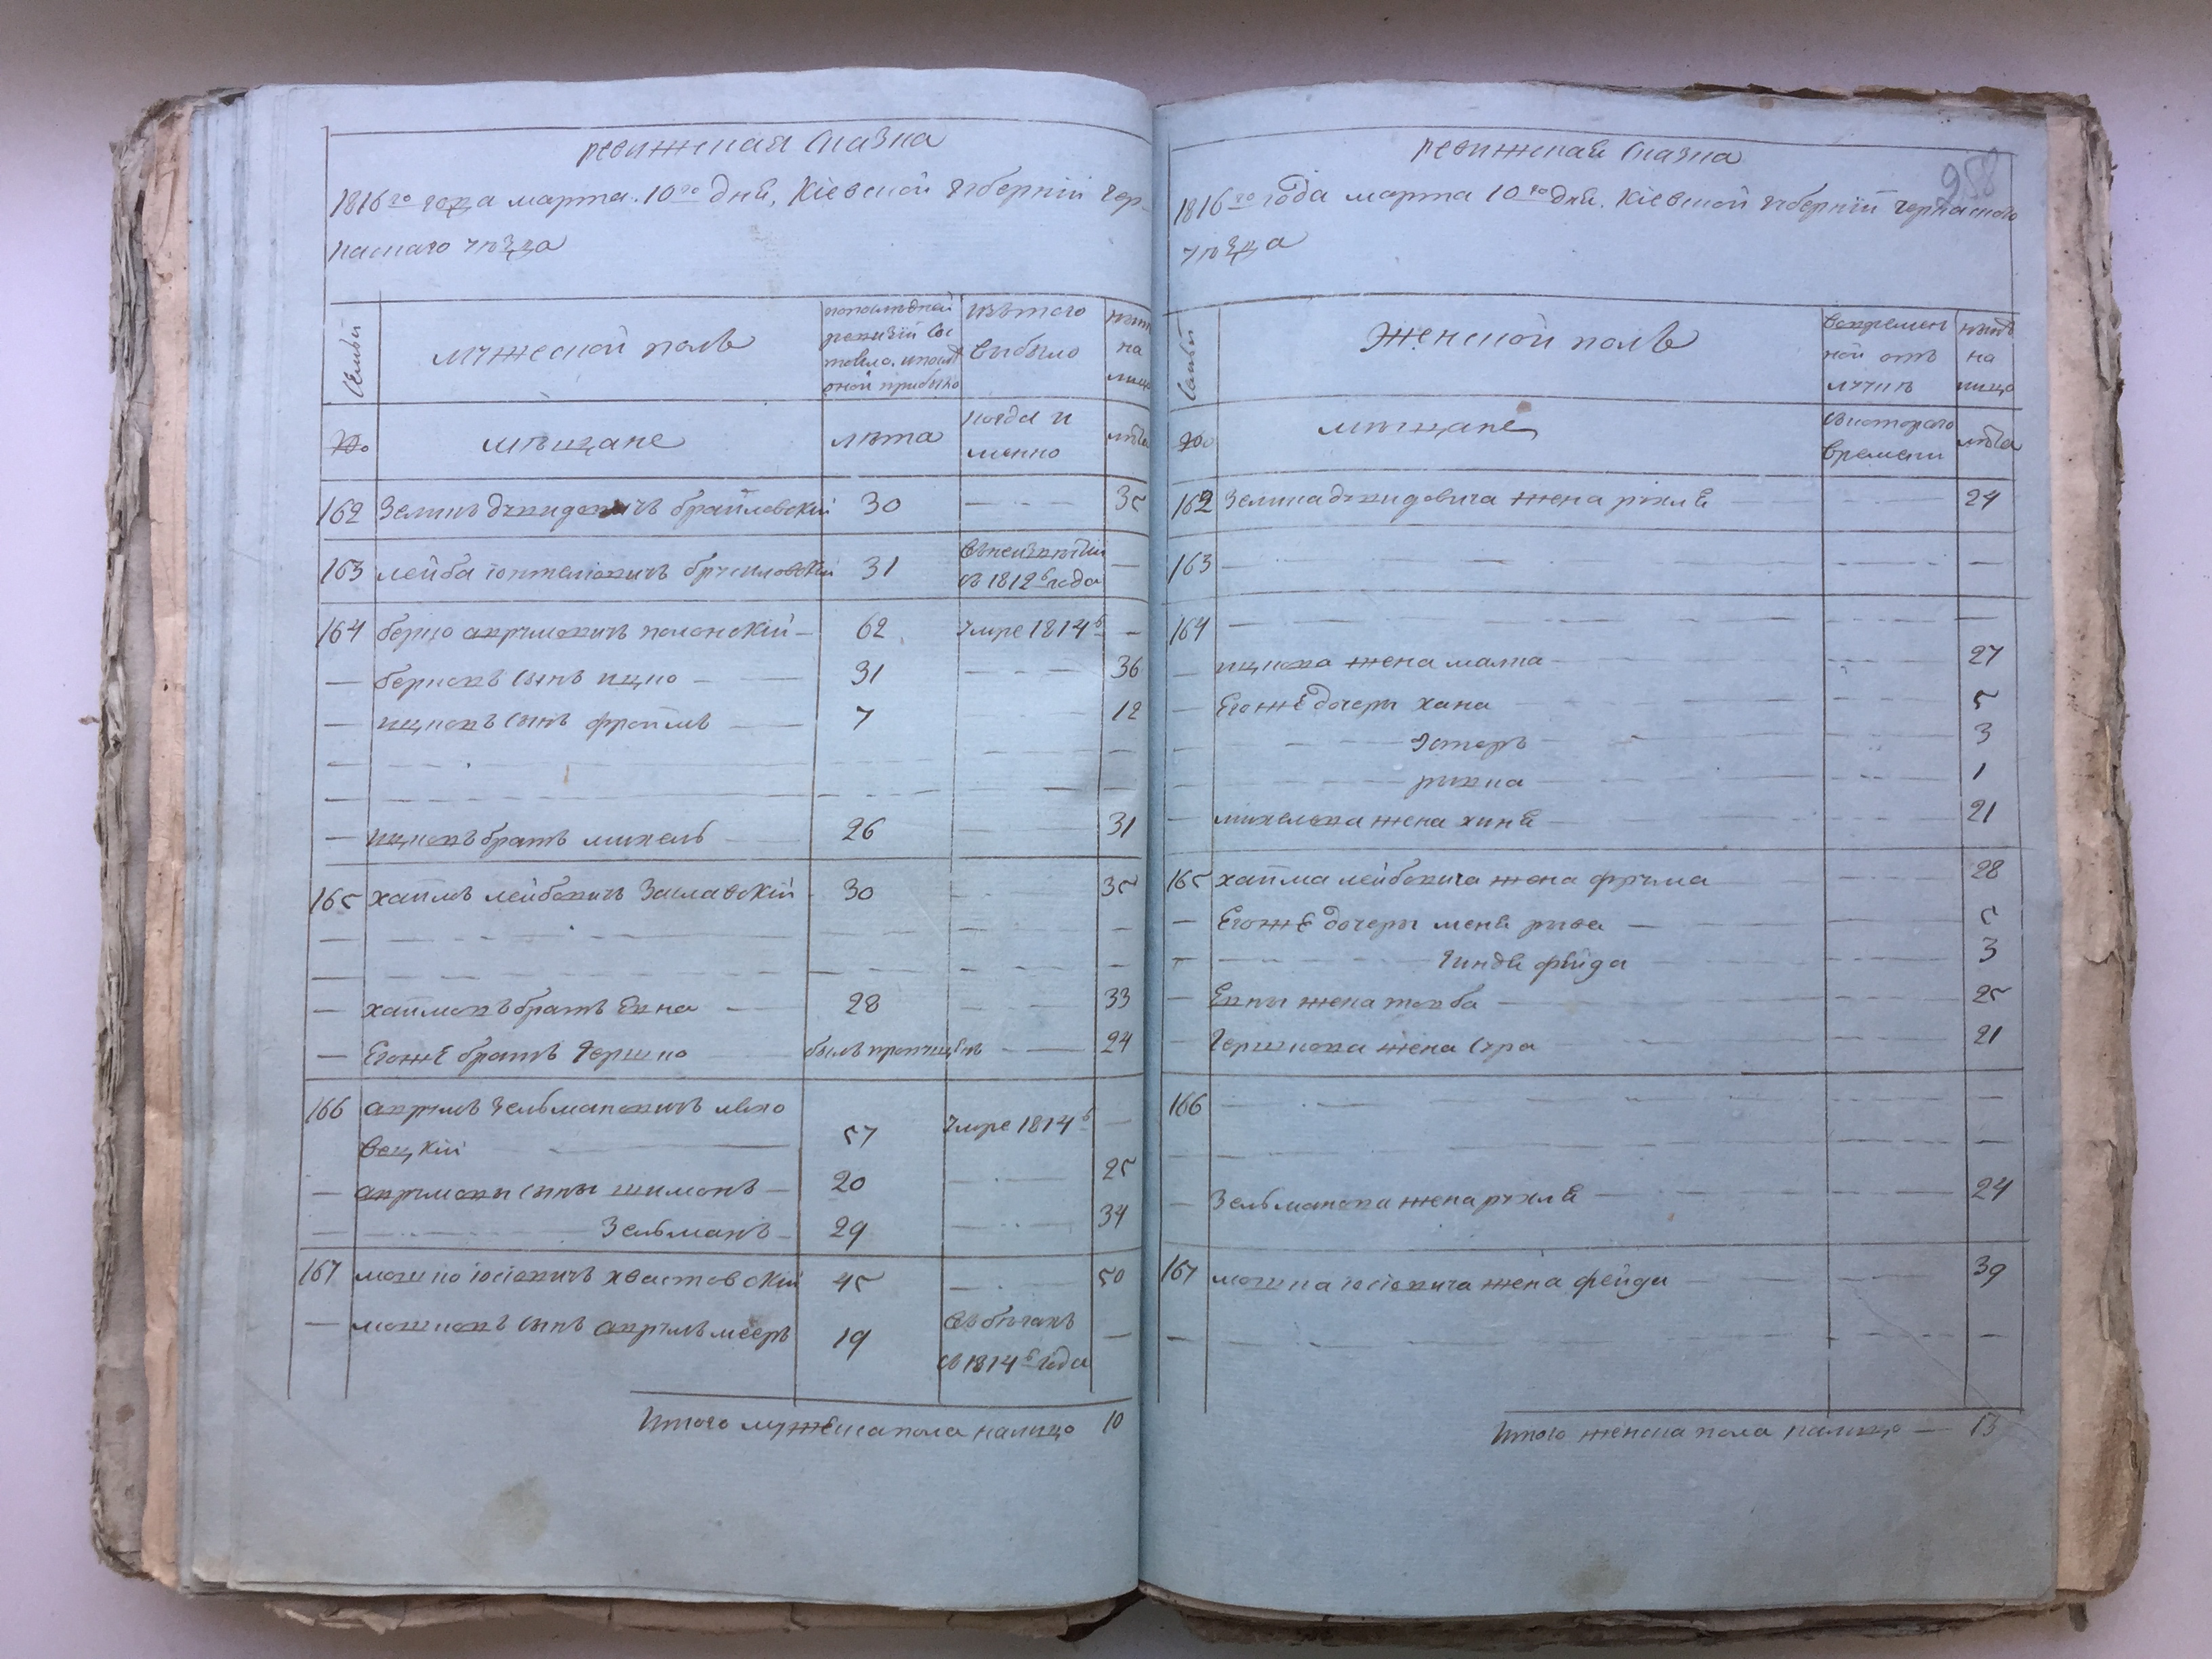 ревижская сказка
1816го года марта 10го дня, Кіевской губерніи Чер-
каскаго уѣзда
Семьи
мужеской полъ
по последней
ревизіи со-
стояло, и после
оной прибыло
изъ того
выбыло
нынѣ
на
лицо
№
мѣщане
лѣта
когда и
менно
лѣта
162 Зеликъ Дувидовичъ Браиловскій 30 — 35
163 Лейба Іонтелiовичъ Брусиловскій 31 —
съ 1812го года
164 Берко Аврумовичъ Полонскій — 62 умре 1814го —
— Берковъ сынъ Ицко — 31 — 36
— Ицковъ сынъ Фроимъ — 7 — 12
— Ицковъ братъ Михель 26 — 31
165 Хаимъ Лейбовичъ Заславскій 30 — 35
— Хаимовъ братъ Евна — 28 — 33
— Егоже братъ Гершко былъ пропущенъ — 24
166 Аврумъ Зельмановичъ Мехо
вецкій — 57 умре 1814го —
— Аврумовы сыны Шимонъ — 20 — 25
— Зельманъ 29 — 34
167 Мошко Іосіовичъ Хвастовскій 45 — 50
— Мошковъ сынъ Аврумъ Мееръ 19 въ бѣгахъ —
съ 1814го года
Итого мужеска пола налицо 10
ревижская сказка
958
1816го года марта 10го дня, Кіевской губерніи Черкаского
уѣзда
Семьи
Женской полъ
во времен
ной отъ
лучкѣ
нынѣ
на
лицо
№
мѣщане
съ котораго
времени
лѣта
162 Зелика Дувидовича жена Рухля — 24
163 —
164 —
— Ицкова жена Малка — 27
— Егоже дочери Хана — 5
— Эстеръ — 3
— Ривка — 1
— Михелева жена Хиня — 21
165 Хаима Лейбовича жена Фрума — 28
— Егоже дочери Меня Рыва — 5
— Гиндя Фейга 3
— Евны жена Товба — 25
— Гершкова жена Сура — 21
166 —
— Зельманова жена Рухля — 24
167 Мошка Іосіовича жена Фейга — 39
Итого женска пола налицо — 13